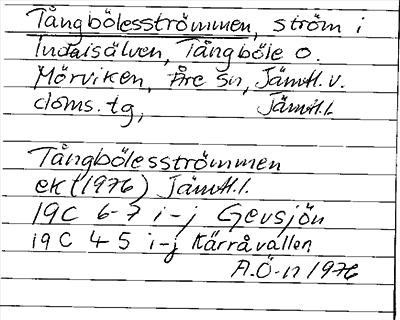 Tångbölesströmmen, ström i
Indalsälven, Tångböle o.
Mörviken, Åre sn, Jämtl. v.
doms. tg, Jämtl.l.
Tångbölesströmmen
ek (1976) Jämtl.l.
19C 6-7 i-j Gevsjön
19C 4-5 i-j Kärråvallen
A.Ö-n 1976